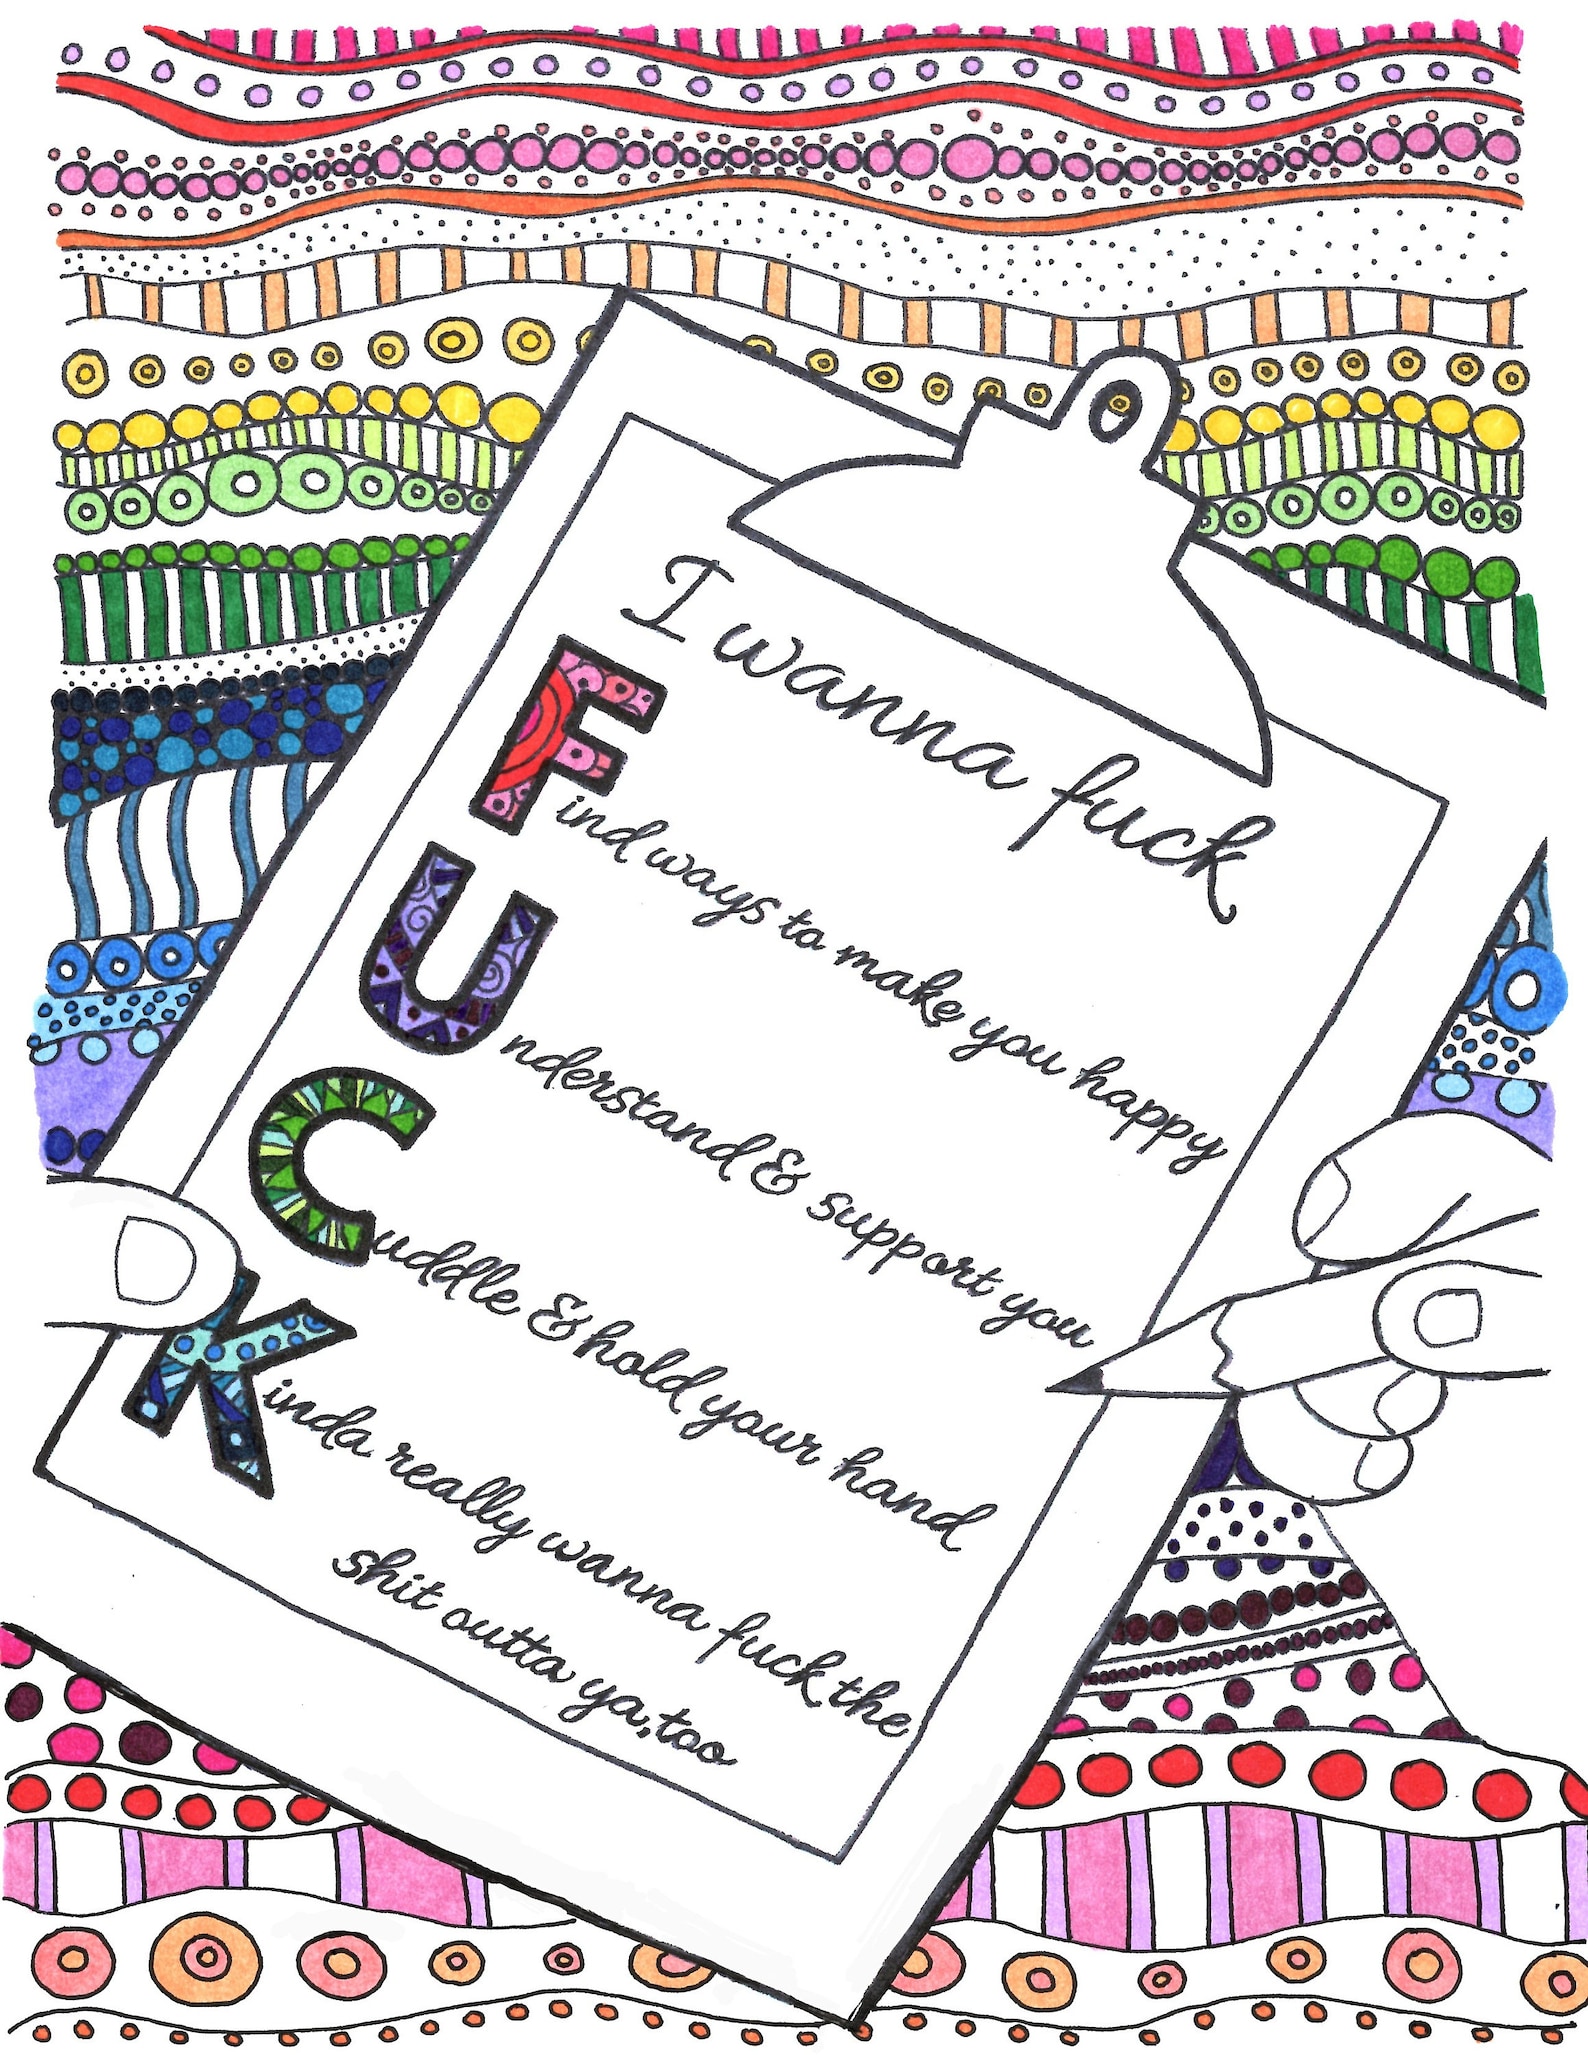 I wanna fuck
Find ways to make you happy
Understand & support you
Cuddle & hold your hand
Kinda really wanna fuck the
shit outta ya, too